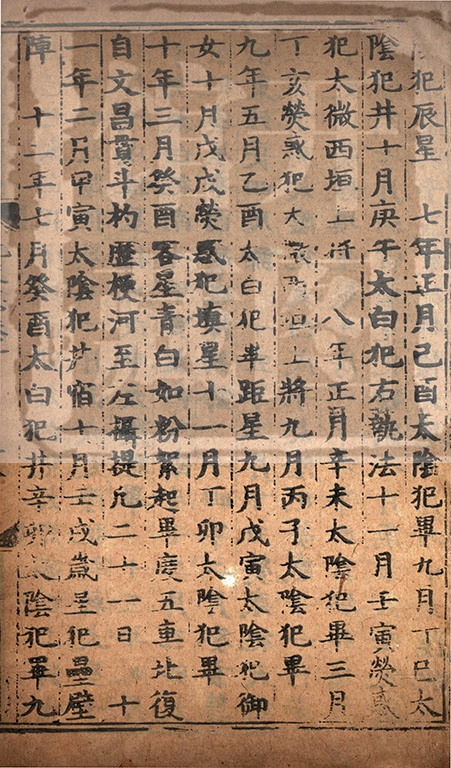 陰犯辰星　七年正月己酉太陰犯畢九月丁巳太
陰犯井十月庚午太白犯右執法十一月壬寅熒惑
犯太微西垣上將　八年正月辛未太陰犯畢三月
丁亥熒惑犯太微西垣上將九月丙子太陰犯畢
九年五月乙酉太白犯畢距星九月戊寅太陰犯御
女十月戊戌熒惑犯填星十一月丁卯太陰犯畢
十年三月癸酉客星青白如粉絮起畢度五車北復
自文昌貫斗杓歷梗河至左攝提凡二十一日　十
一年二月甲寅太陰犯井宿十月壬戌歲星犯壘壁
陣　十二年七月癸酉太白犯井辛卯太陰犯畢九